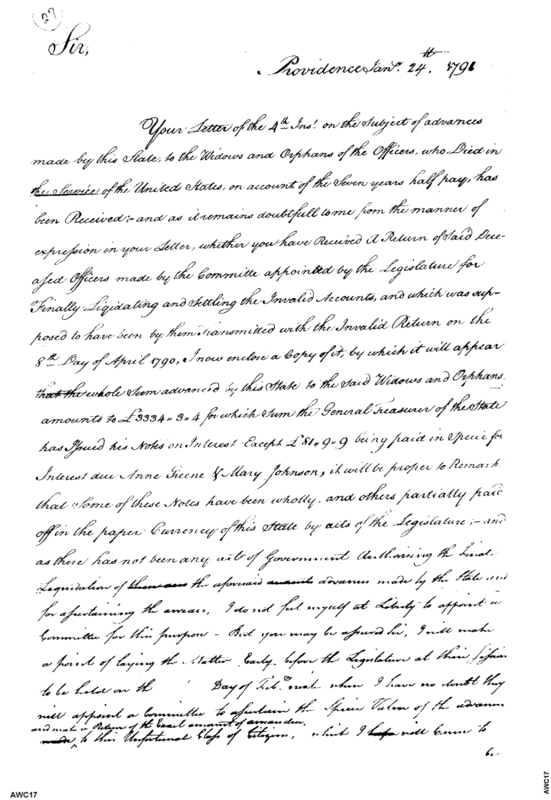 27
Sir,
Providence Jany. 24th. 1791
Your Letter of the 4th Inst. on the Subject of advances
made by this State, to the Widows and Orphans of the Officers, who Died in
the Service of the United States, on account of the Seven years half pay, has
been Received;- and as it remains doubtfull to me from the manner of
expression in your Letter, whether you have Received a Return of Said Dece-
ased Officers made by the Committe appointed by the Legislature for
Finally Liqidating and Settling the Invalid Accounts, and which was sup-
posed to have been by them Transmitted with the Invalid Return on the
8th Day of April 1790, I now enclose a Copy of it, by which it will appear
that the whole Sum advanced by this State to the Said Widows and Orphans
amounts to £3334"3"4 for which Sum the General Treasurer of the State
has Issued his Notes on Interest Except £81"9"9 being paid in Specie for
Interest due Anne Greene & Mary Johnson, it will be proper to Remark
that Some of these Notes have been wholly. and others partially paid
off in the paper Currency of this State by acts of the Legislature;- and
as there has not been any acts of Government Authorising the
Liquidation of the aforesaid advances made by the State and
for ascertaining the arrears, I do not feel myself at Liberty to appoint a
Committee for this purpose - But you may be assured Sir, I will make
a point of laying the Matter Early before the Legislature at their Session
to be held on the Day of Feb. next when I have no doubt they
will appoint a Committee to ascertain the Specie Value of the advances
and make a Return of the Exact amount of
to this Unfortunate Class of Citizens, which I will come to
AWC17
AWC17